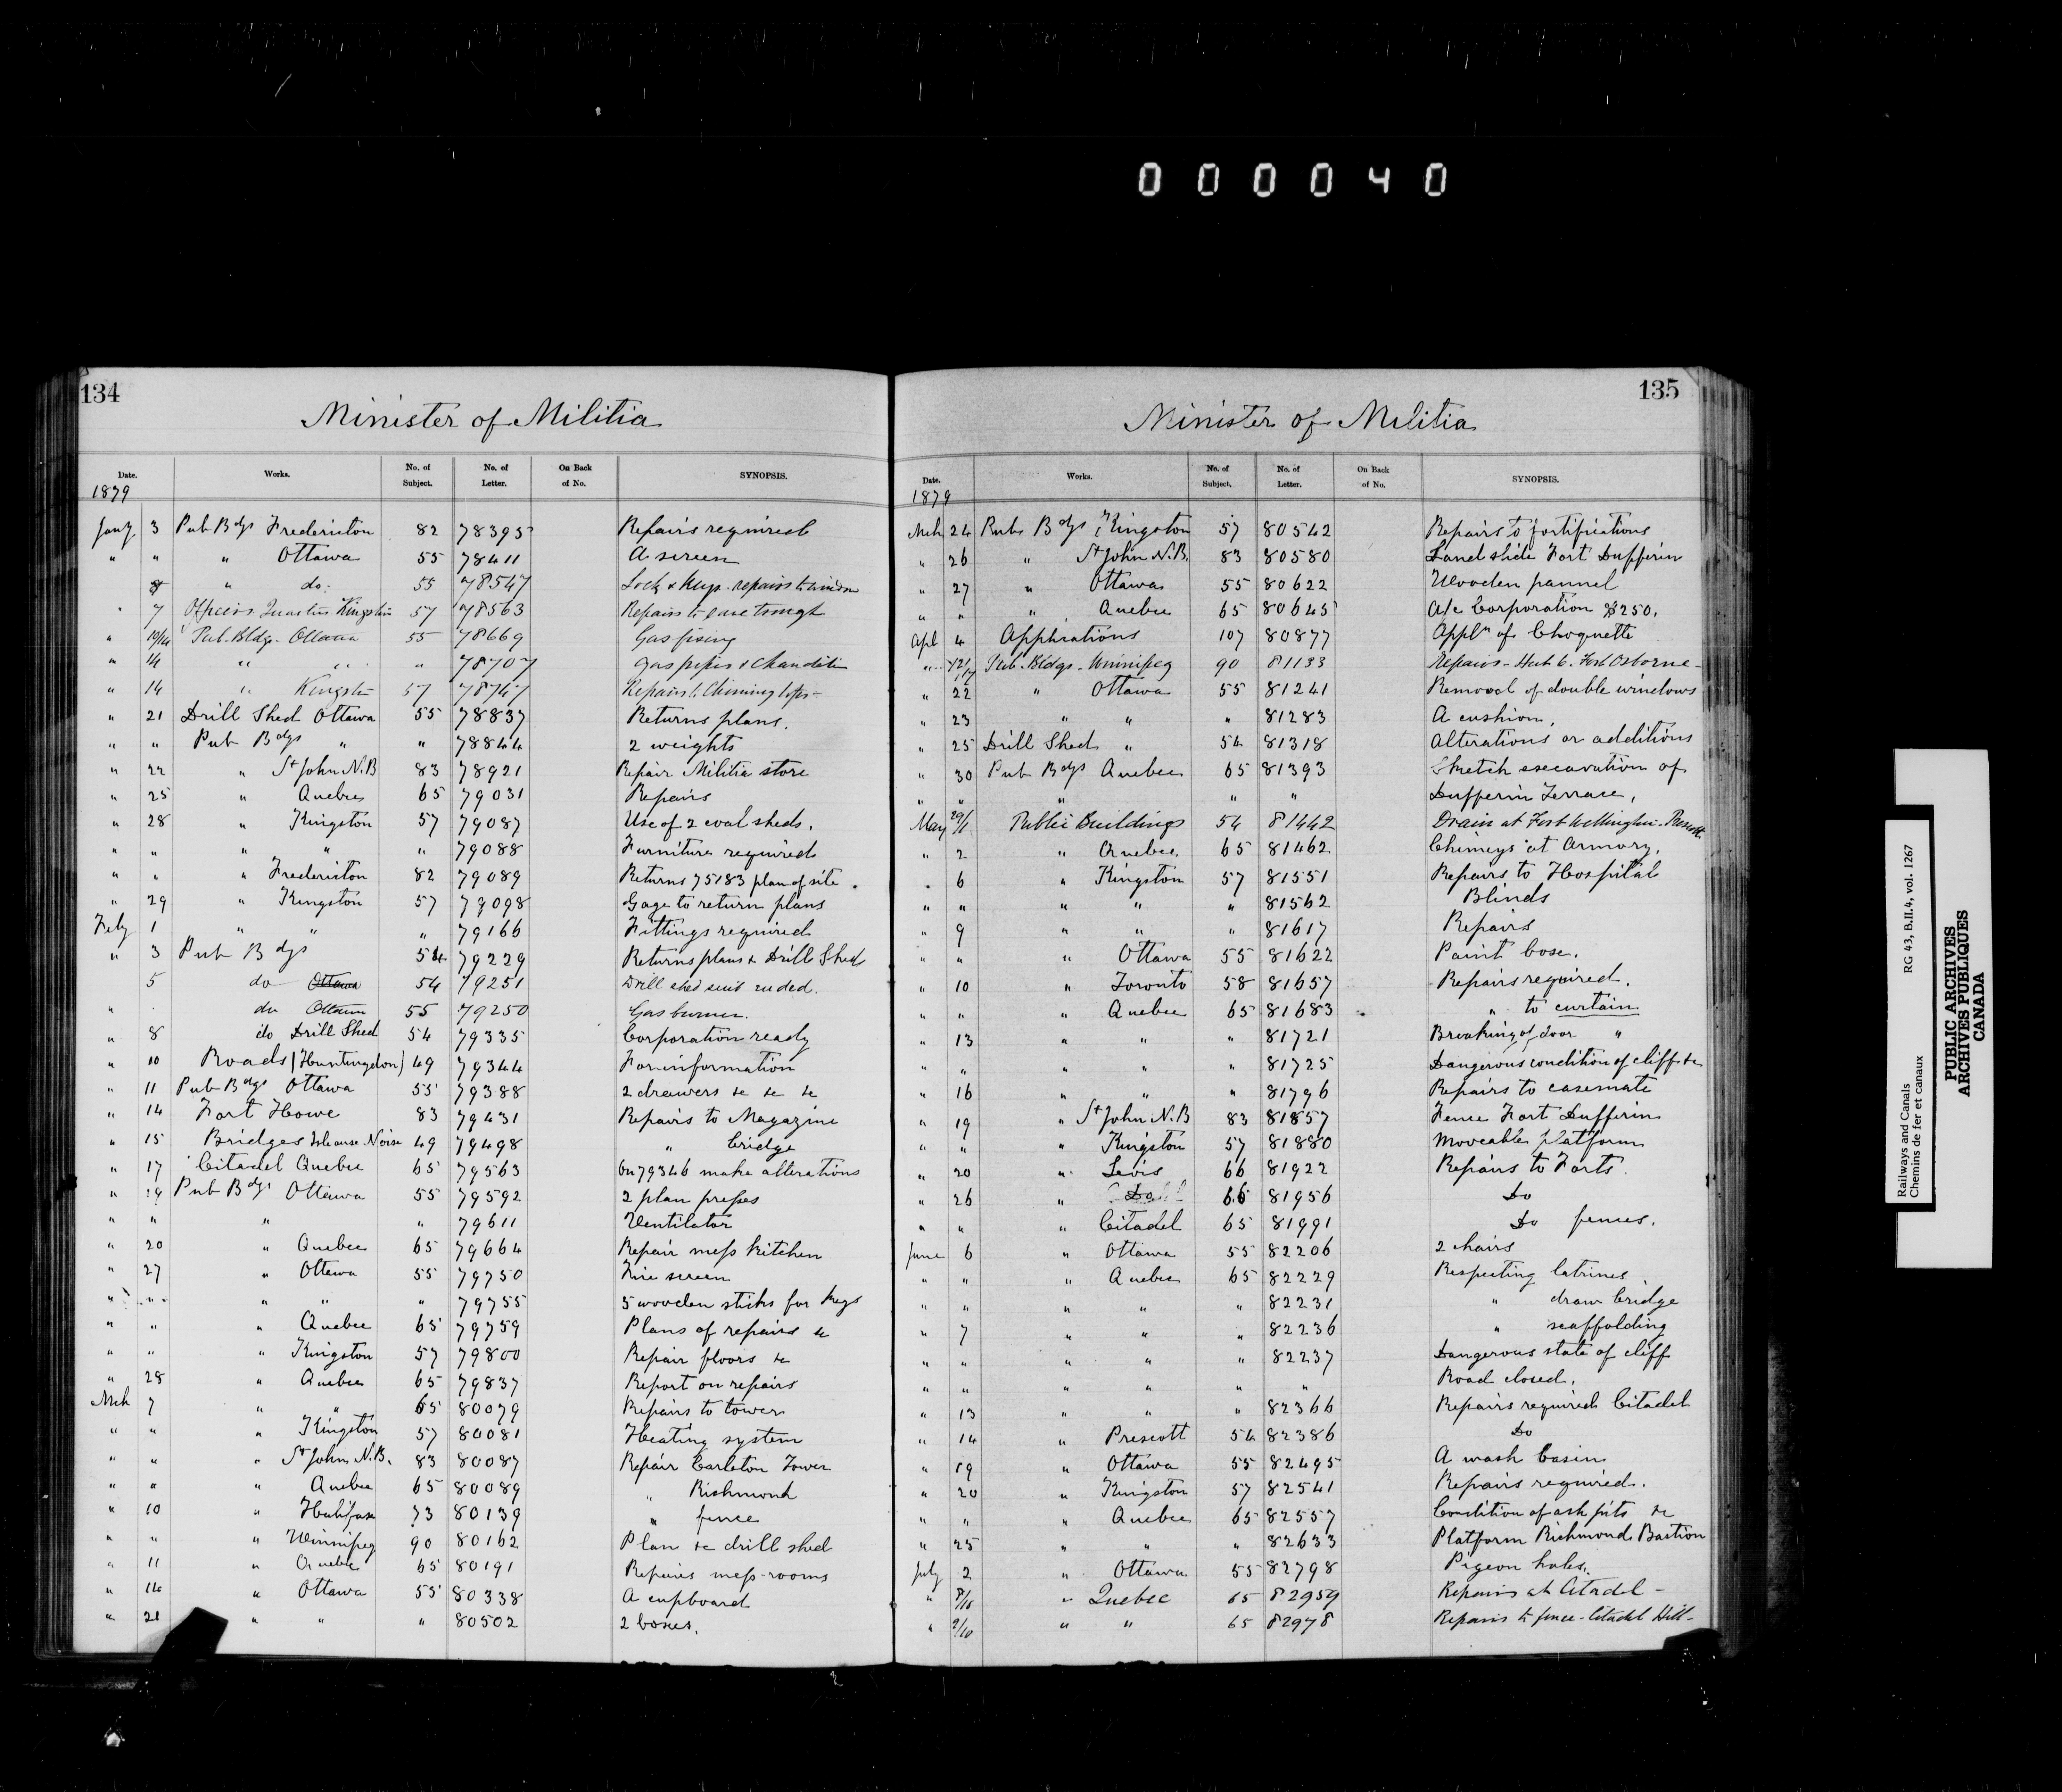 000040
134
Minister of Militia
Date. Works. No. of Subject. No. of Letter. On Back of No. SYNOPSIS.
1879
Jany 3 Pub Bdgs Fredericton 82 78395 Repairs required
" " " Ottawa 55 78411 A screen
8 " do: 55 78547 Lock & Keys - repairs to
" 7 Officers Quarters Kingston 57 78563 Repairs to eave trough
" 10/14 Pub. Bldgs. Ottawa 55 78669 Gas fixing
" 14 " " " 78707 Gas pipes &
" 14 " Kingston 57 78747 Repairs to Chimney tops -
" 21 Drill Shed Ottawa 55 78837 Returns plans.
" " Pub Bdgs " " 78844 2 weights
" 22 " St John N.B 83 78921 Repair Militia store
" 25 " Quebec 65 79031 Repairs
" 28 " Kingston 57 79087 Use of 2 coal sheds.
" " " " " 79088 Furniture required
" " " Fredericton 82 79089 Returns 75183 plan of site.
" 29 " Kingston 57 79098 Gage to return plans
Feby 1 " " " 79166 Fittings required
" 3 Pub Bdgs 54 79229 Returns plans & Drill Sheds
5 do Ottawa 54 79251 Drill shed
" do Ottawa 55 79250 Gas burner.
" 8 do Drill Shed 54 79335 Corporation ready
" 10 Roads (Huntingdon) 49 79344 For information
" 11 Pub Bdgs Ottawa 55 79388 2 drawers &c &c &c
" 14 Fort Howe 83 79431 Repairs to Magazine
" 15 Bridges Isle aux Noix 49 79498 " bridge
" 17 Citadel Quebec 65 79563 On 79346 make alterations
" 19 Pub Bdgs Ottawa 55 79592 2 plan presses
" " " " 79611 Ventilator
" 20 " Quebec 65 79664 Repair mess kitchen
" 27 " Ottawa 55 79750 Fire screen
" " " " " 79755 5 wooden sticks for keys
" " " Quebec 65 79759 Plans of repairs &c
" " " Kingston 57 79800 Repair floors &c
" 28 " Quebec 65 79837 Report on repairs
Mch 7 " " 65 80079 Repairs to tower
" " " Kingston 57 80081 Heating system
" " " St John N.B. 83 80087 Repair Carleton Tower
" " " Quebec 65 80089 " Richmond
" 10 " Halifax 73 80139 " fence
" " " Winnipeg 90 80162 Plan &c drill shed
" 11 " Quebec 65 80191 Repairs mess-rooms
" 14 " Ottawa 55 80338 A cupboard
" 21 " " " 80502 2 boxes.
135
Minister of Militia
Date. Works. No. of Subject. No. of Letter. On Back of No. SYNOPSIS.
1879
Mch 24 Pub Bdgs Kingston 57 80542 Repairs to fortifications
" 26 " St John N.B. 83 80580 Land slide Fort Dufferin
" 27 " Ottawa 55 80622 Wooden pannel
" " " Quebec 65 80645 A/c Corporation $250.
Apl 4 Applications 107 80877 Appln of Choquette
" 12/17 Pub. Bldgs. Winnipeg 90 81133 Repairs - Hut 6. Fort Osborne -
" 22 " Ottawa 55 81241 Removal of double windows
" 23 " " " 81283 A cushion.
" 25 Drill Shed " 54 81318 Alterations or additions
" 30 Pub Bdgs Quebec 65 81393 Sketch excavation of
" " " " " Dufferin Terrace.
May 29/1 Public Buildings 54 81442 Drain at Fort Wellington - Prescott
" 2 " Quebec 65 81462 Chimeys at Armory.
" 6 " Kingston 57 81551 Repairs to Hospital
" " " " " 81562 Blinds
" 9 " " " 81617 Repairs
" " " Ottawa 55 81622 Paint box.
" 10 " Toronto 58 81657 Repairs required.
" " " Quebec 65 81683 " to curtain
" 13 " " " 81721 Breaking of door "
" " " " " 81725 Dangerous condition of cliff &c
" 16 " " " 81796 Repairs to casemate
" 19 " St John N.B 83 81857 Fence Fort Dufferin
" " " Kingston 57 81880 Moveable platform
" 20 " Levis 66 81922 Repairs to Forts.
" 26 " Do 66 81956 Do
" " " Citadel 65 81991 Do fences.
June 6 " Ottawa 55 82206 2 chairs
" " " Quebec 65 82229 Respecting latrines
" " " " " 82231 " draw bridge
" 7 " " " 82236 " scaffolding
" " " " " 82237 Dangerous state of cliff
" " " " " " Road closed.
" 13 " " " 82366 Repairs required Citadel
" 14 " Prescott 54 82386 Do
" 19 " Ottawa 55 82495 A wash basin
" 20 " Kingston 57 82541 Repairs required.
" " " Quebec 65 82557 Condition of ash pits &c
" 25 " " " 82633 Platform Richmond Bastion
July 2 " Ottawa 55 82798 Pigeon holes.
" 8/10 " Quebec 65 82959 Repairs at Citadel -
" 9/10 " " 65 82978 Repairs to fence - Citadel Hill -
Railways and Canals RG 43, B.II.4, vol. 1267
Chemins de fer et canaux
PUBLIC ARCHIVES
ARCHIVES PUBLIQUES
CANADA